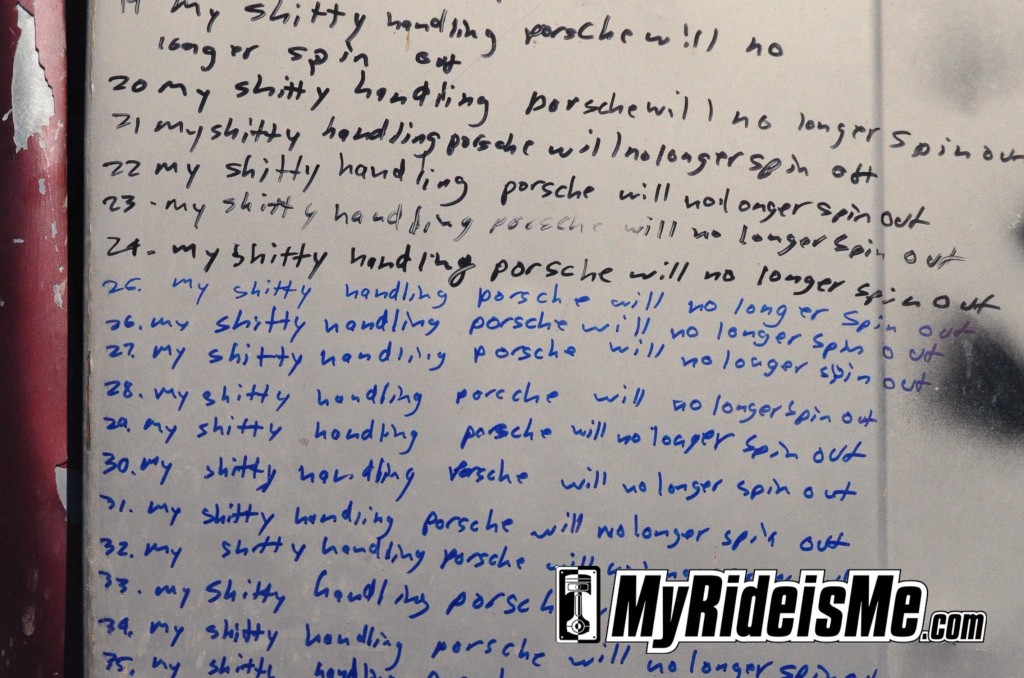 19 my shitty handling porsche will no
longer spin out
20 my shitty handling porsche will no longer spin out
21 my shitty handling porsche will no longer spin out
22 my shitty handling porsche will no longer spin out
23. my shitty handling porsche will no longer spin out
24. my shitty handling porsche will no longer spin out
25. my shitty handling porsche will no longer spin out
26. my shitty handling porsche will no longer spin out
27. my shitty handling porsche will no longer spin out
28. my shitty handling porsche will no longer spin out
29. my shitty handling porsche will no longer spin out
30. my shitty handling porsche will no longer spin out
31. my shitty handling porsche will no longer spin out
32. my shitty handling porsche will
33. my shitty handling porsche
34. my shitty handling porsche will no longer spin out
35. my shitty handling
MyRideisMe.com